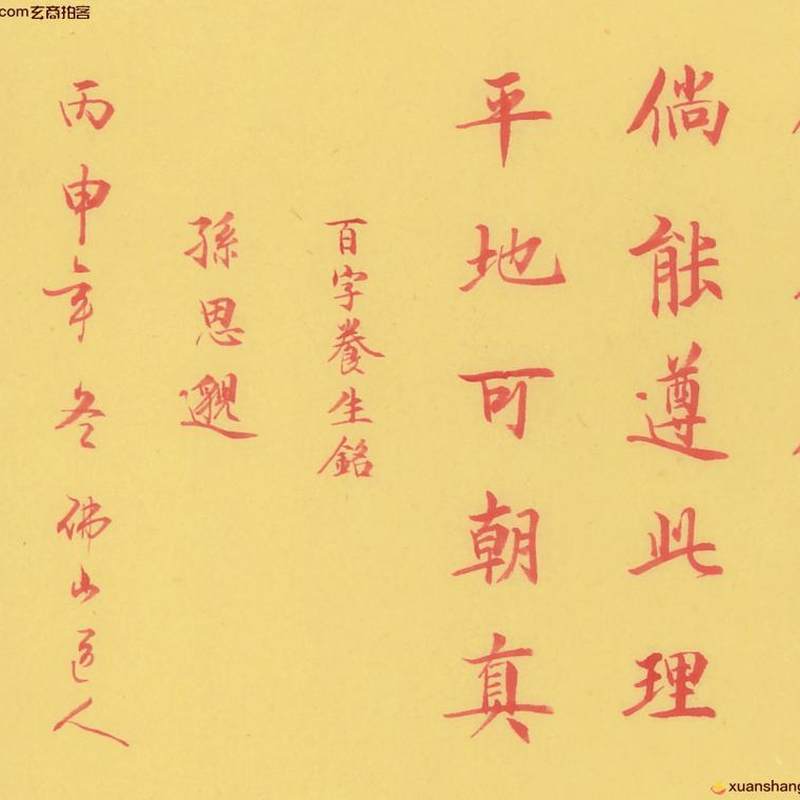 com玄商拍客
倘能遵此理
平地可朝真
百字養生銘
孫思邈
丙申年冬佛山道人
xuanshang